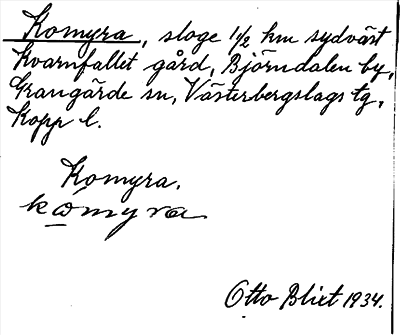 Komyra, sloge 1 1/2 km sydväst
Kvarnfallet gård, Björndalen by,
Grangärde sn, Västerbergslags tg,
Kopp l.
Komyra.
kọmyra
Otto Blixt 1934.